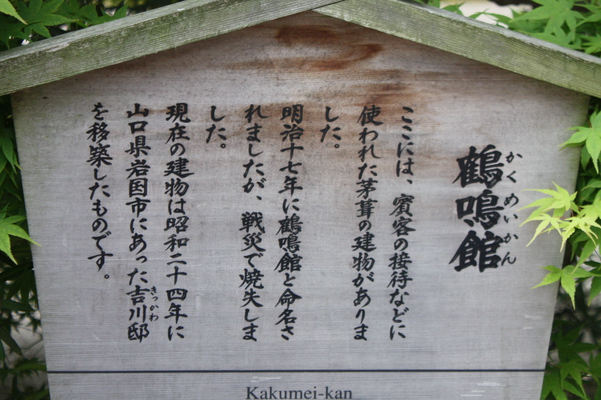 鶴鳴館
かくめいかん
ここには、賓客の接待などに
使われた茅葺の建物がありま
した。
明治十七年に鶴鳴館と命名さ
れましたが、戦災で焼失しま
した。
現在の建物は昭和二十四年に
山口県岩国市にあった吉川邸
きっかわ
を移築したものです。
Kakumei-kan